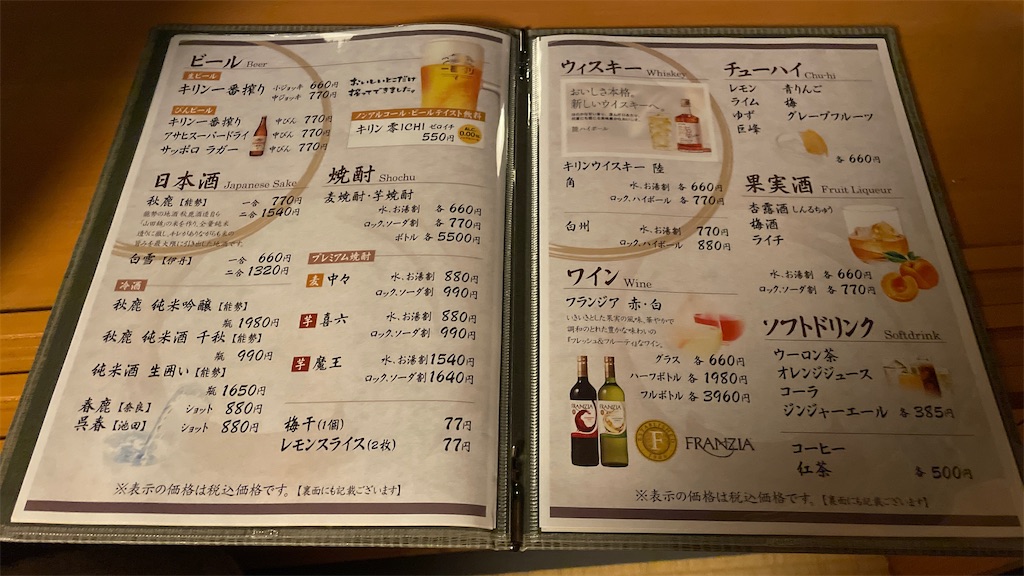 ビール Beer
生ビール
キリン一番搾り 小ジョッキ 660円
中ジョッキ 770円
びんビール
キリン一番搾り 中びん 770円
アサヒスーパードライ 中びん 770円
サッポロ ラガー 中びん 770円
おいしいとこだけ
搾ってできました。
ノンアルコール・ビールテイスト飲料
キリン 零ICHI ゼロイチ
550円
0.00%
日本酒 Japanese Sake
秋鹿【能勢】 一合 770円
二合 1540円
能勢の地酒 秋鹿酒造自ら
「山田錦」の米を作り、全量純米
造りに徹し、キレがありながらも米の
旨みを最大限に引き出した地酒です。
白雪【伊丹】 一合 660円
二合 1320円
冷酒
秋鹿 純米吟醸【能勢】
瓶 1980円
秋鹿 純米酒 千秋【能勢】
瓶 990円
純米酒 生囲い【能勢】
瓶 1650円
春鹿【奈良】 ショット 880円
呉春【池田】 ショット 880円
焼酎 Shochu
麦焼酎・芋焼酎
水、お湯割 各 660円
ロック、ソーダ割 各 770円
ボトル 各 5500円
プレミアム焼酎
麦 中々 水、お湯割 880円
ロック、ソーダ割 990円
芋 喜六 水、お湯割 880円
ロック、ソーダ割 990円
芋 魔王 水、お湯割 1540円
ロック、ソーダ割 1640円
梅干(1個) 77円
レモンスライス(2枚) 77円
※表示の価格は税込価格です。【裏面にも記載ございます】
ウィスキー Whiskey
おいしさ本格。
新しいウイスキーへ。
陸 ハイボール
キリンウイスキー 陸
角 水、お湯割 各 660円
ロック、ハイボール 各 770円
白州 水、お湯割 770円
ロック、ハイボール 880円
ワイン Wine
フランジア 赤・白
いきいきとした果実の風味、華やかで
調和のとれた豊かな味わいの
『フレッシュ&フルーティ』なワイン。
グラス 各 660円
ハーフボトル 各 1980円
フルボトル 各 3960円
FRANZIA
FRANZIA
F
FRANZIA
チューハイ Chu-hi
レモン 青りんご
ライム 梅
ゆず グレープフルーツ
巨峰
各 660円
果実酒 Fruit Liqueur
杏露酒 しんるちゅう
梅酒
ライチ
水、お湯割 各 660円
ロック、ソーダ割 各 770円
ソフトドリンク Softdrink
ウーロン茶
オレンジジュース
コーラ
ジンジャーエール 各 385円
コーヒー
紅茶 各 500円
※表示の価格は税込価格です。【裏面にも記載ございます】